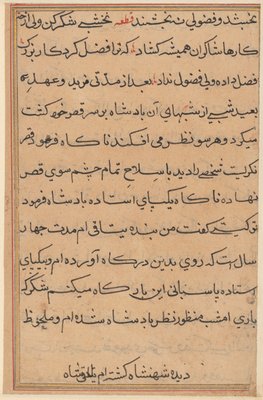 نبخشد و فضولی نه بخشند قطعه نخشبی شکر کن ولی
کارها شاکران همیشه کشاد کرد کار بزرک
فضل داده ولی فضول نداد بعد از مدتی مدید و عهد
بعید شبی از شبهای آن بادشاه بر سر قصر خود کشت
میکرد و هر سو نظر می افکند ناکاه فرود قصر
نکریست شخصی را دید با سلاح تمام چشم سوی قصر
نهاده ناکاه یکپای استاده بادشاه فرمود
تو کیستی کفت من بنده یتاقی ام مدت چهار
سال است که روی بدین درکاه آورده ام و بیکپای
استاده پاسبانی این بارکاه میکنم شکر که
باری امشب منظور نظر بادشاه شده ام و ملحوظ
دیده شهنشاه کشته ام بادشاه